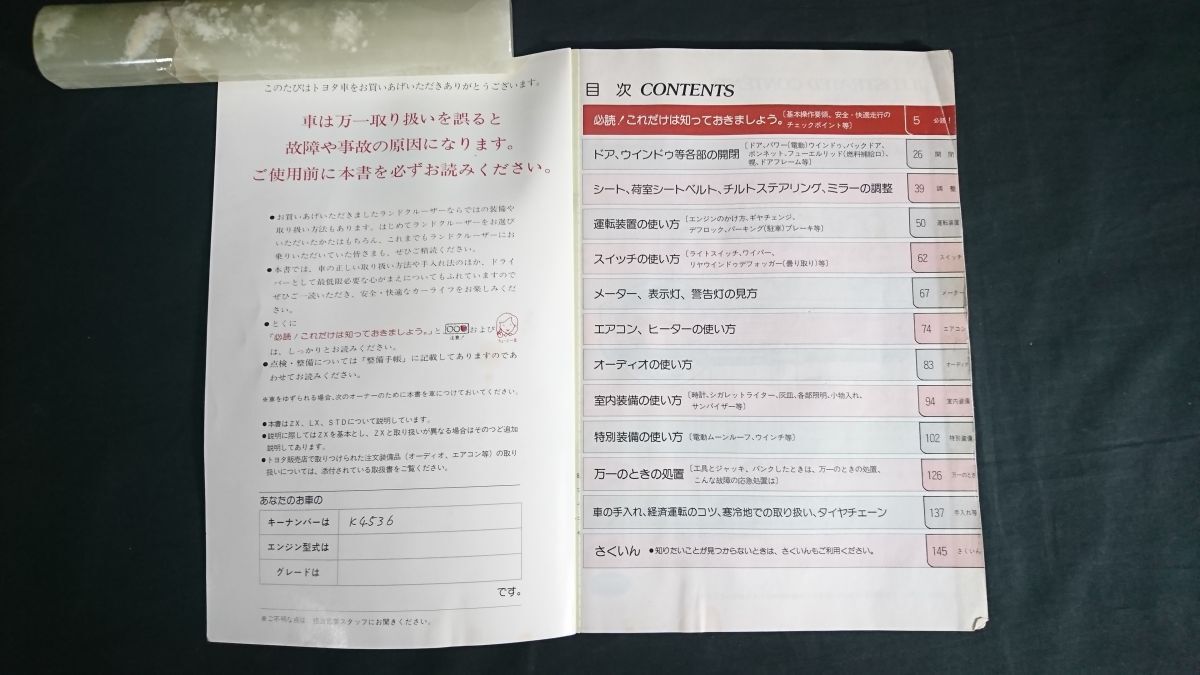 このたびはトヨタ車をお買いあげいただきありがとうございます。
車は万一取り扱いを誤ると
故障や事故の原因になります。
ご使用前に本書を必ずお読みください。
●お買いあげいただきましたランドクルーザーならではの装備や
取り扱い方法もあります。はじめてランドクルーザーをお選び
いただいたかたはもちろん、これまでもランドクルーザーにお
乗りいただいていた皆さまも、ぜひご精読ください。
●本書では、車の正しい取り扱い方法や手入れ法のほか、ドライ
バーとして最低限必要な心かまえについてもふれていますので
ぜひご一読いただき、安全・快適なカーライフをお楽しみくだ
さい。
●とくに
「必読!これだけは知っておきましょう。」と 注意! および
は、しっかりとお読みください。
●点検・整備については「整備手帳」に記載してありますのであ
わせてお読みください。
※車をゆずられる場合、次のオーナーのために本書を車につけておいてください。
●本書はZX、LX、STDについて説明しています。
●説明に際してはZXを基本とし、ZXと取り扱いが異なる場合はそのつど追加
説明してあります。
●トヨタ販売店で取りつけられた注文装備品(オーディオ、エアコン等)の取り
扱いについては、添付されている取扱書をご覧ください。
あなたのお車の
キーナンバーは K4536
エンジン型式は
グレードは
です。
※ご不明な点は 担当営業スタッフにお聞きください。
目 次 CONTENTS
必読!これだけは知っておきましょう。〔基本操作要領、安全・快適走行の
チェックポイント等〕 5 必読!
ドア、ウインドゥ等各部の開閉〔ドア、パワー(電動)ウインドゥ、バックドア、
ボンネット、フューエルリッド(燃料補給口)、
幌、ドアフレーム等〕 26 開閉
シート、荷室シートベルト、チルトステアリング、ミラーの調整 39 調整
運転装置の使い方〔エンジンのかけ方、ギヤチェンジ、
デフロック、パーキング(駐車)ブレーキ等〕 50 運転装置
スイッチの使い方〔ライトスイッチ、ワイパー、
リヤウインドゥデフォッガー(曇り取り)等〕 62 スイッチ
メーター、表示灯、警告灯の見方 67 メーター
エアコン、ヒーターの使い方 74 エアコン
オーディオの使い方 83 オーディオ
室内装備の使い方〔時計、シガレットライター、灰皿、各部照明、小物入れ、
サンバイザー等〕 94 室内装備
特別装備の使い方〔電動ムーンルーフ、ウインチ等〕 102 特別装備
万一のときの処置〔工具とジャッキ、パンクしたときは、万一のときの処置、
こんな故障の応急処置は〕 126 万一のとき
車の手入れ、経済運転のコツ、寒冷地での取り扱い、タイヤチェーン 137 手入れ等
さくいん ●知りたいことが見つからないときは、さくいんもご利用ください。 145 さくいん